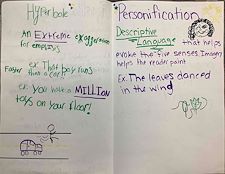 Hyperbole
An Extreme exaggeration
for emphasis
Faster
ex. That boy runs
than a car!
ex. you have a MILLION
toys on your floor!
Personification
Descriptive
Language that helps
evoke the five senses. Imagery
helps the reader paint
Ex. The leaves danced
in the wind